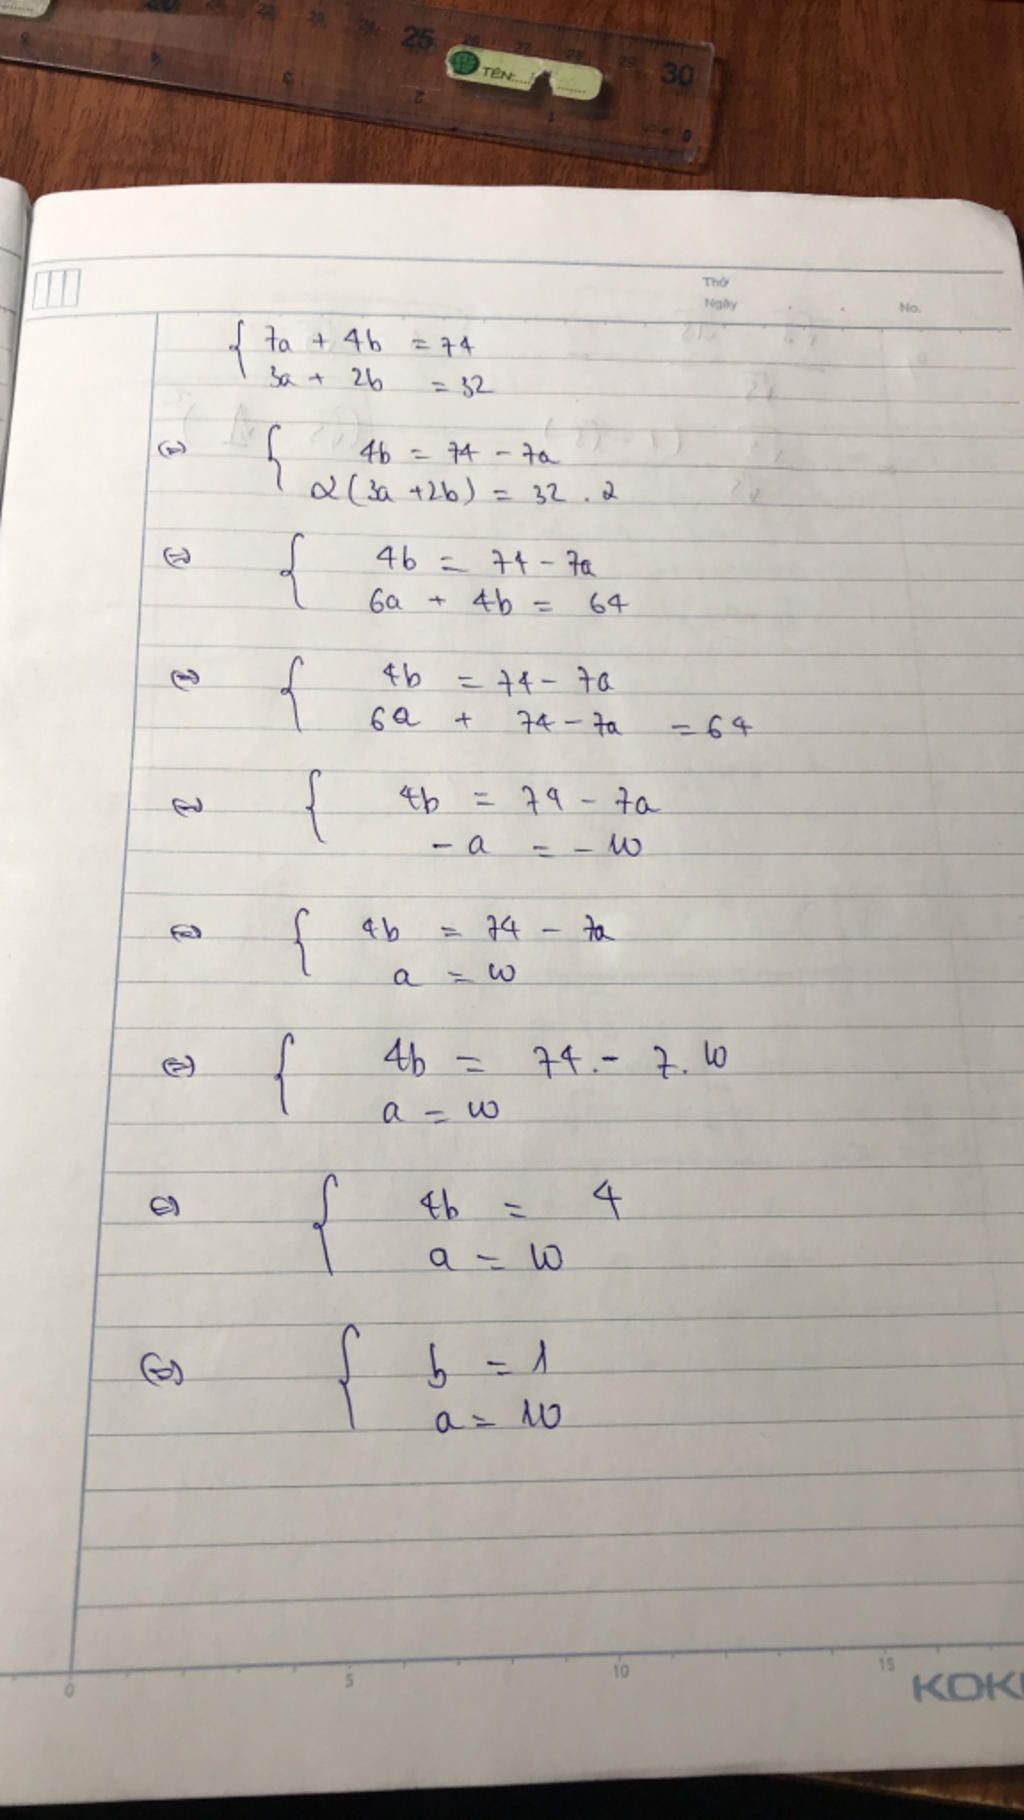 25 26 27 28 29 30
TÊN:
Thứ
Ngày
No.
7a + 4b = 74
3a + 2b = 32
⇔ 4b = 74 - 7a
2(3a + 2b) = 32 . 2
⇔ 4b = 74 - 7a
6a + 4b = 64
⇔ 4b = 74 - 7a
6a + 74 - 7a = 64
⇔ 4b = 74 - 7a
- a = - 10
⇔ 4b = 74 - 7a
a = 10
⇔ 4b = 74 - 7. 10
a = 10
⇔ 4b = 4
a = 10
⇔ b = 1
a = 10
0 5 10 15